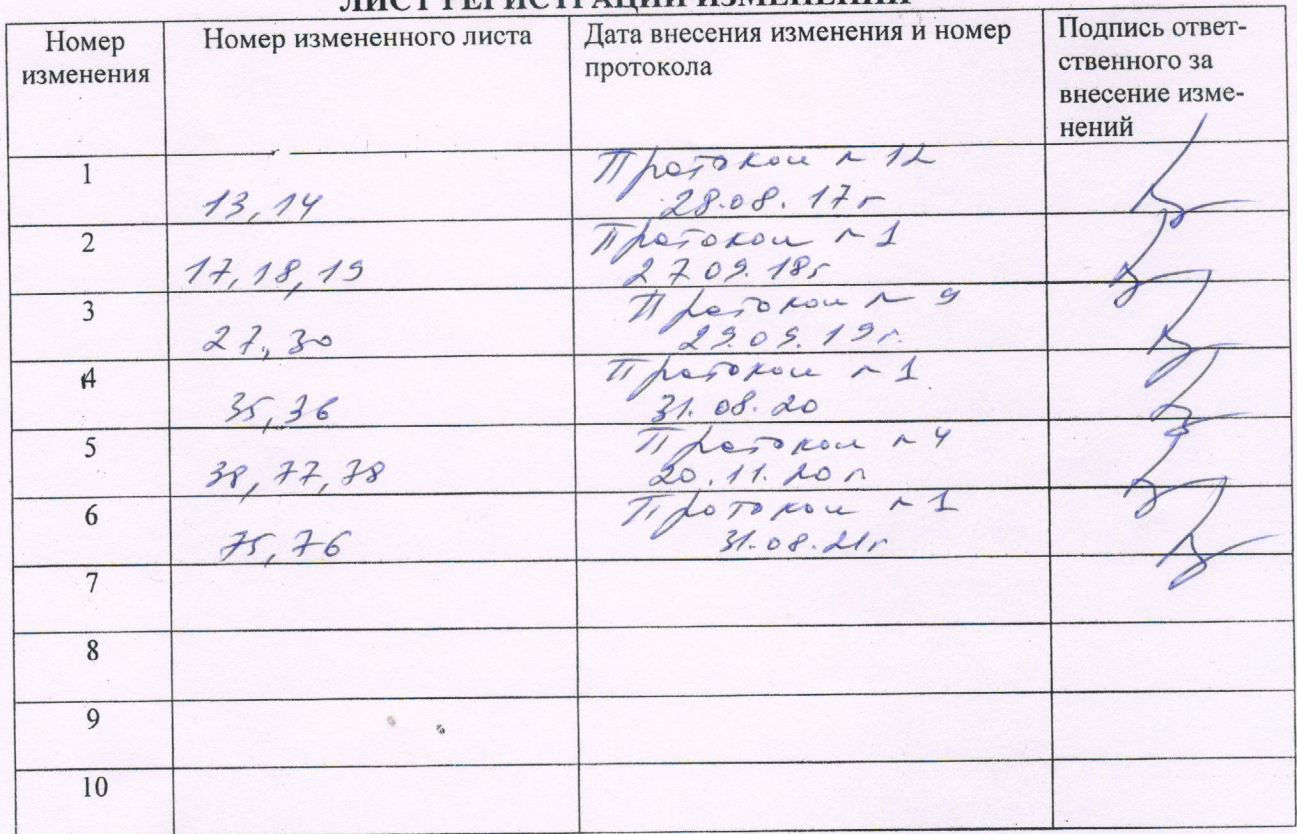 ЛИСТ РЕГИСТРАЦИИ ИЗМЕНЕНИЙ
Номер изменения
Номер измененного листа
Дата внесения изменения и номер протокола
Подпись ответ-
ственного за
внесение изме-
нений
1
13, 14
Протокол № 12
28.08.17г
2
17, 18, 19
Протокол № 1
27.09.18г
3
27, 30
Протокол № 9
29.09.19г.
4
35, 36
Протокол № 1
31.08.20
5
38, 77, 78
Протокол № 4
20.11.20г
6
75, 76
Протокол № 1
31.08.21г
7
8
9
10